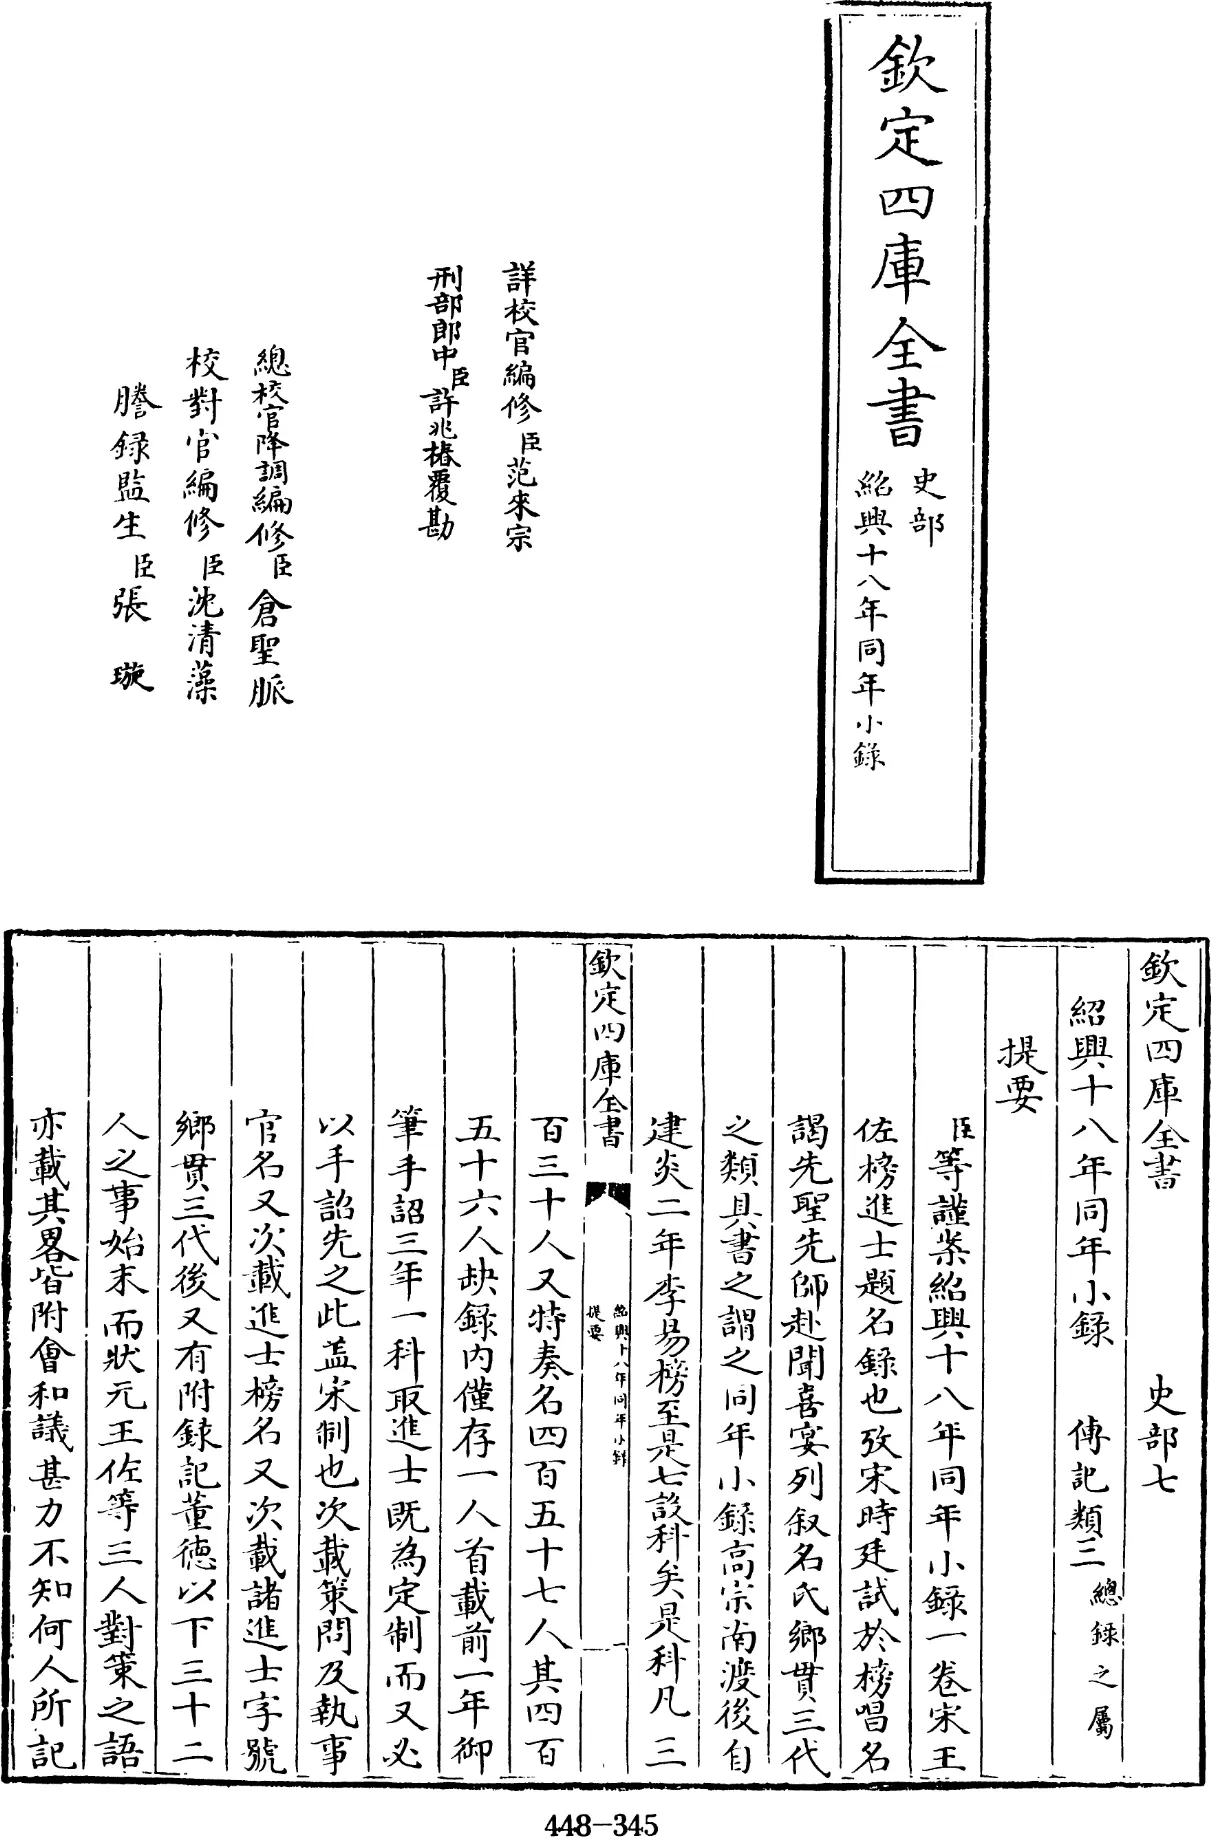 欽定四庫全書
史部
紹興十八年同年小錄
詳校官編修臣范來宗
刑部郎中臣許兆椿覆勘
總校官降調編修臣倉聖脈
校對官編修臣沈清藻
謄録監生臣張璇
欽定四庫全書 史部七
紹興十八年同年小録 傳記類三總錄之屬
提要
臣等謹案紹興十八年同年小録一卷宋王
佐榜進士題名録也攷宋時廷試於榜唱名
謁先聖先師赴聞喜宴列叙名氏鄉貫三代
之類具書之謂之同年小錄高宗南渡後自
建炎二年李易榜至是七設科矣是科凡三
欽定四庫全書
紹興十八年同年小録
提要
一
百三十人又特奏名四百五十七人其四百
五十六人缺録内僅存一人首載前一年御
筆手詔三年一科取進士既為定制而又必
以手詔先之此盖宋制也次載策問及執事
官名又次載進士榜名又次載諸進士字號
鄉貫三代後又有附録記董德以下三十二
人之事始末而狀元王佐等三人對策之語
亦載其畧皆附會和議甚力不知何人所記
448-345